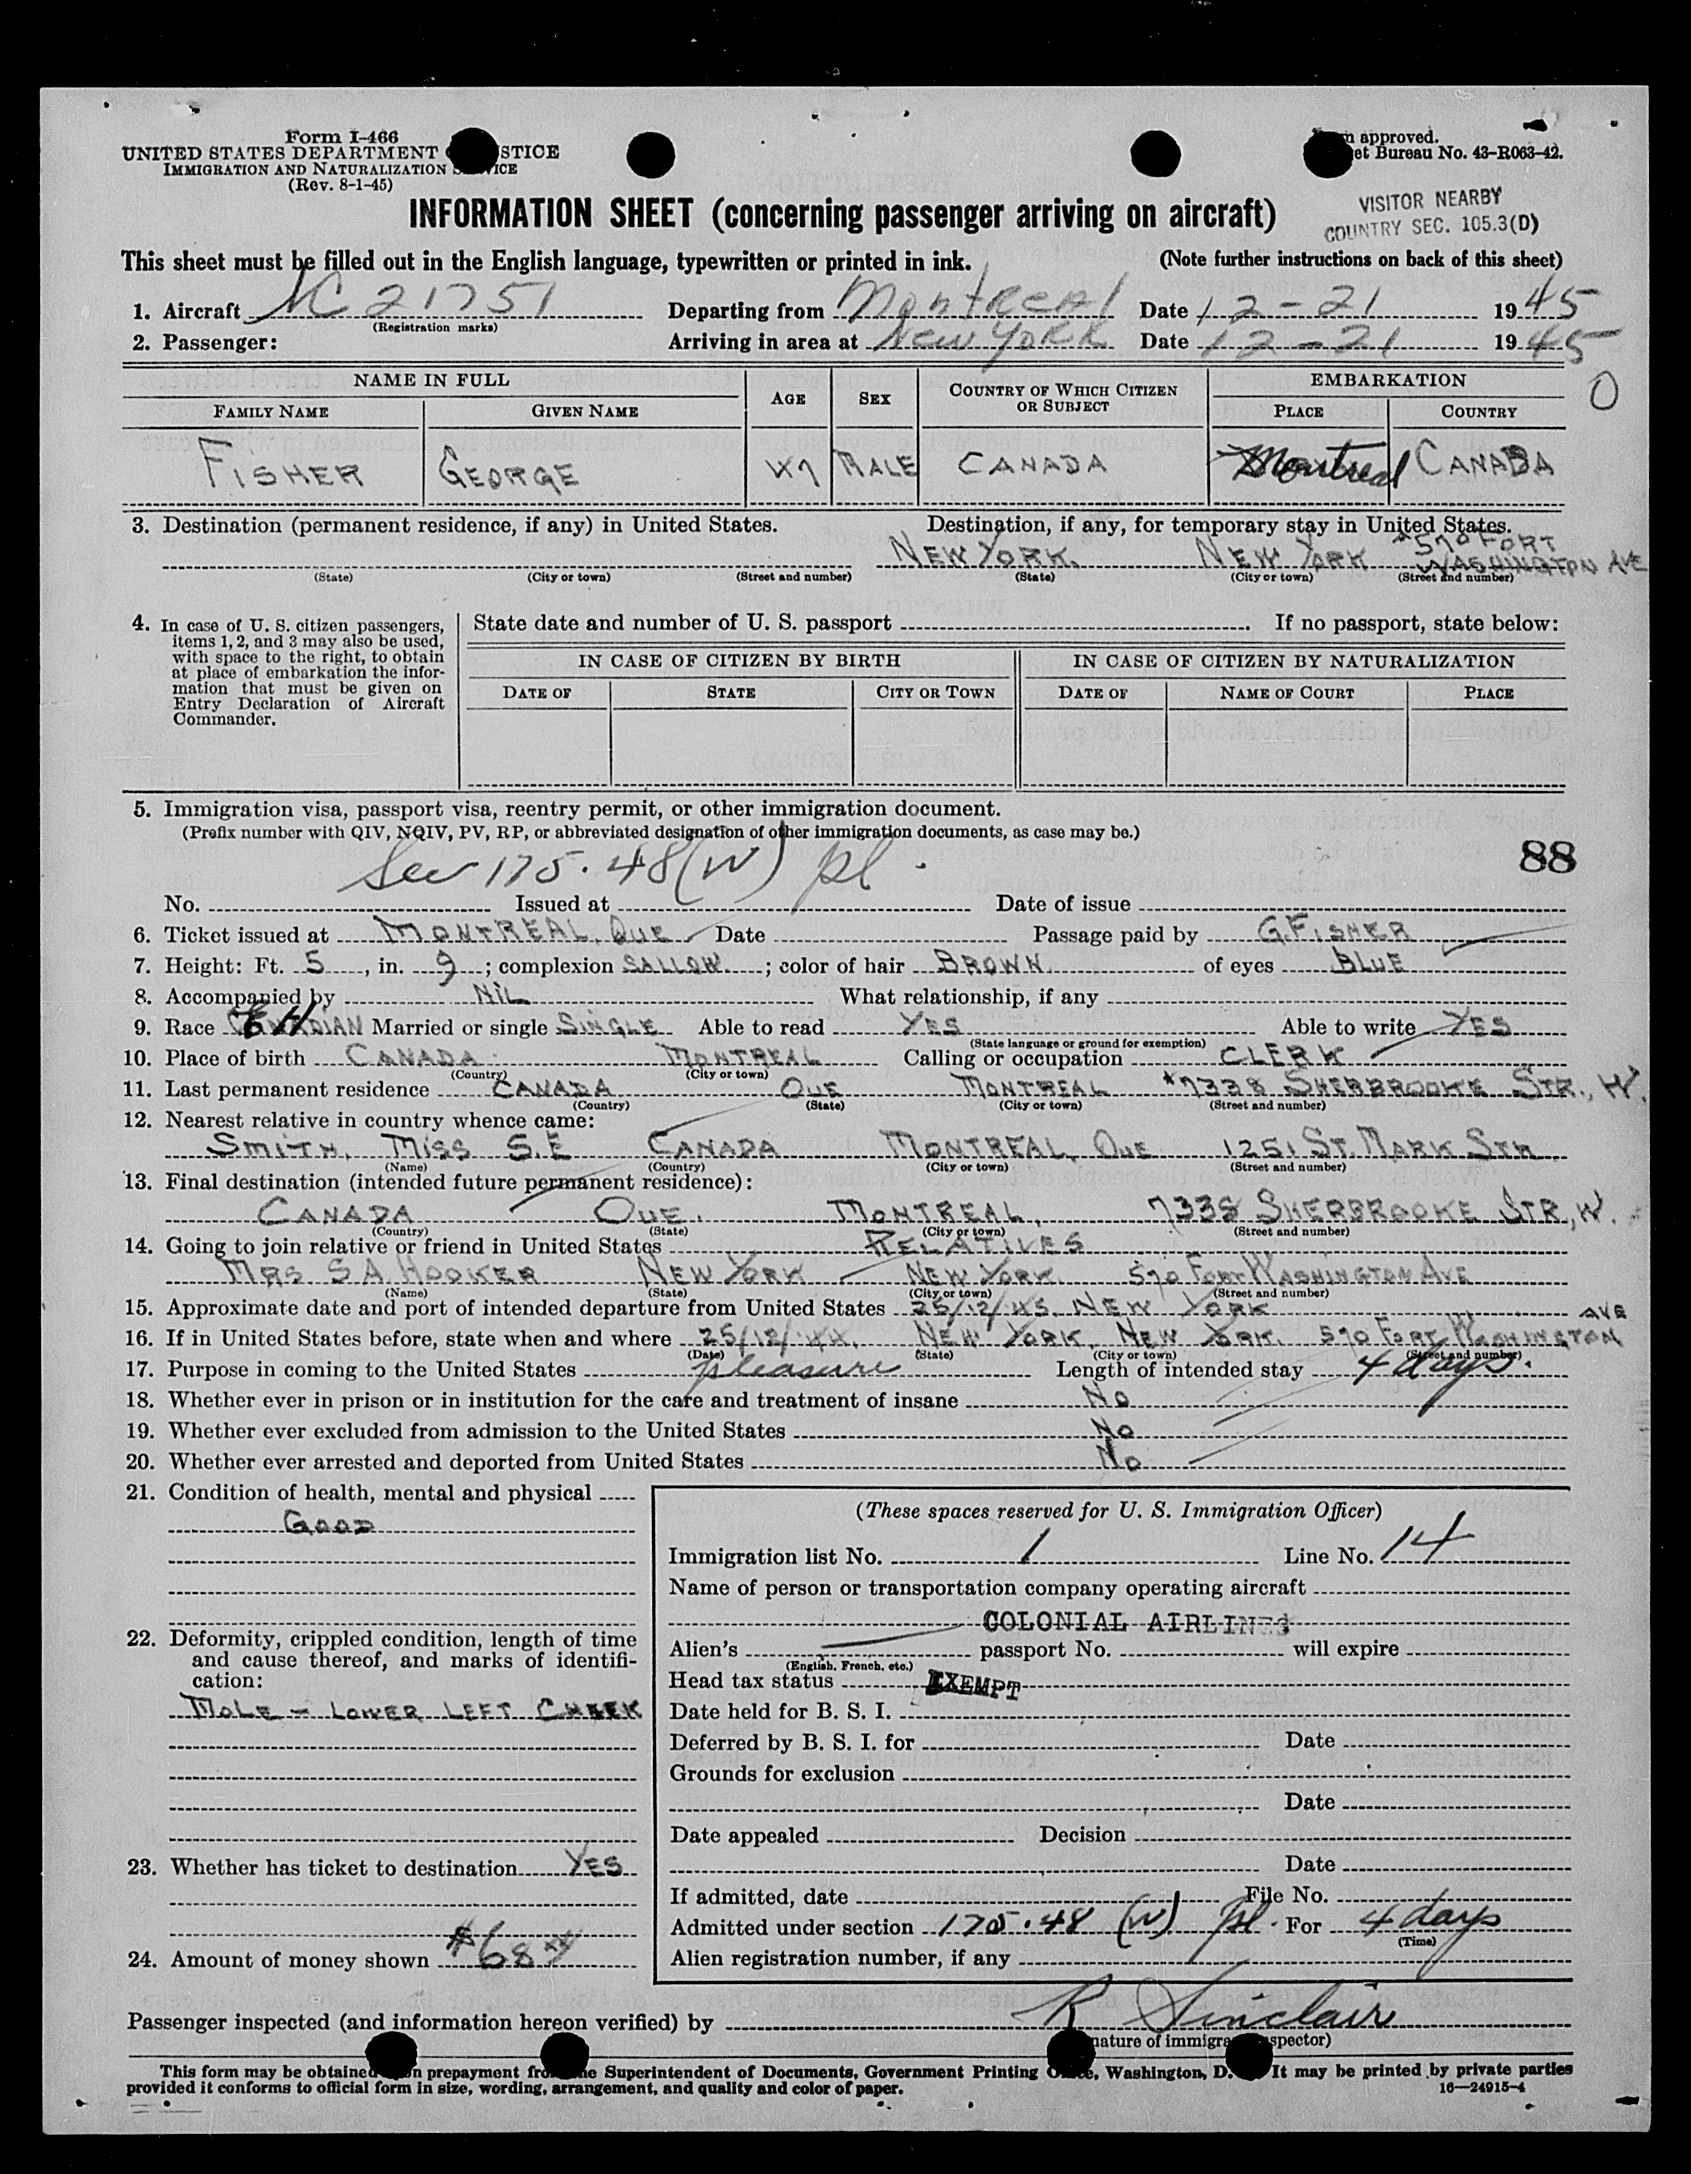 Form I-466
UNITED STATES DEPARTMENT STICE
IMMIGRATION AND NATURALIZATION SERVICE
(Rev. 8-1-45)
approved.
et Bureau No. 43-R063-42.
INFORMATION SHEET (concerning passenger arriving on aircraft)
VISITOR NEARBY
COUNTRY SEC. 105.3(D)
This sheet must be filled out in the English language, typewritten or printed in ink. (Note further instructions on back of this sheet)
1. Aircraft NC 21751 Departing from Montreal Date 12-21 1945
(Registration marks)
2. Passenger: Arriving in area at New York Date 12-21 1945
0
NAME IN FULL AGE SEX COUNTRY OF WHICH CITIZEN OR SUBJECT EMBARKATION
FAMILY NAME GIVEN NAME PLACE COUNTRY
FISHER GEORGE 47 MALE CANADA Montreal CANADA
3. Destination (permanent residence, if any) in United States. Destination, if any, for temporary stay in United States.
NEW YORK. NEW YORK 570 FORT WASHINGTON AVE
(State) (City or town) (Street and number) (State) (City or town) (Street and number)
4. In case of U. S. citizen passengers, items 1, 2, and 3 may also be used, with space to the right, to obtain at place of embarkation the information that must be given on Entry Declaration of Aircraft Commander.
State date and number of U. S. passport If no passport, state below:
IN CASE OF CITIZEN BY BIRTH IN CASE OF CITIZEN BY NATURALIZATION
DATE OF STATE CITY OR TOWN DATE OF NAME OF COURT PLACE
5. Immigration visa, passport visa, reentry permit, or other immigration document.
(Prefix number with QIV, NQIV, PV, RP, or abbreviated designation of other immigration documents, as case may be.)
Sec 175.48(W) pl. 88
No. Issued at Date of issue
6. Ticket issued at MONTREAL, QUE Date Passage paid by G. FISHER
7. Height: Ft. 5, in. 9; complexion SALLOW; color of hair BROWN of eyes BLUE
8. Accompanied by NIL What relationship, if any
9. Race CANADIAN Married or single SINGLE Able to read YES Able to write YES
(State language or ground for exemption)
10. Place of birth CANADA MONTREAL Calling or occupation CLERK
(Country) (City or town)
11. Last permanent residence CANADA QUE MONTREAL 7338 SHERBROOKE STR., W.
(Country) (State) (City or town) (Street and number)
12. Nearest relative in country whence came:
SMITH, MISS S.E CANADA MONTREAL, QUE 1251 ST. MARK STR.
(Name) (Country) (City or town) (Street and number)
13. Final destination (intended future permanent residence):
CANADA QUE. MONTREAL, 7338 SHERBROOKE STR., W.
(Country) (State) (City or town) (Street and number)
14. Going to join relative or friend in United States RELATIVES
MRS S A HOOKER NEW YORK NEW YORK. 570 FORT WASHINGTON AVE
(Name) (State) (City or town) (Street and number)
15. Approximate date and port of intended departure from United States 25/12/45. NEW YORK
16. If in United States before, state when and where 25/12/44. NEW YORK, NEW YORK. 570 FORT WASHINGTON AVE
(Date) (State) (City or town) (Street and number)
17. Purpose in coming to the United States pleasure Length of intended stay 4 days.
18. Whether ever in prison or in institution for the care and treatment of insane NO
19. Whether ever excluded from admission to the United States NO
20. Whether ever arrested and deported from United States NO
21. Condition of health, mental and physical
GOOD
22. Deformity, crippled condition, length of time and cause thereof, and marks of identification:
MOLE - LOWER LEFT CHEEK
23. Whether has ticket to destination YES
24. Amount of money shown $68
(These spaces reserved for U. S. Immigration Officer)
Immigration list No. 1 Line No. 14
Name of person or transportation company operating aircraft
COLONIAL AIRLINES
Alien's passport No. will expire
(English, French, etc.)
Head tax status EXEMPT
Date held for B. S. I.
Deferred by B. S. I. for Date
Grounds for exclusion
Date
Date appealed Decision
Date
If admitted, date File No.
Admitted under section 175.48 (W) pl. For 4 days
(Time)
Alien registration number, if any
Passenger inspected (and information hereon verified) by R Sinclair
nature of immigra spector)
This form may be obtained n prepayment fro e Superintendent of Documents, Government Printing Office, Washington, D. It may be printed by private parties
provided it conforms to official form in size, wording, arrangement, and quality and color of paper. 16—24915-4